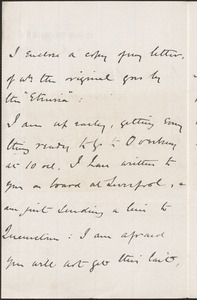 I enclose a copy of my letter,
of wh the original goes by
the "Etruria":
I am up early, getting every
thing ready to go to
at 10 ocl. I have written to
you on board at Liverpool, &
am just sending a line to
Queenstown: I am afraid
you will not get this last,